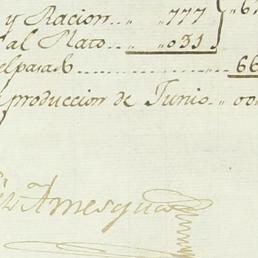 y Racion.. „ „777 } „6
al Plato.. „ „031
elparab........................66
produccion de Junio.. „ 00
Amesqua